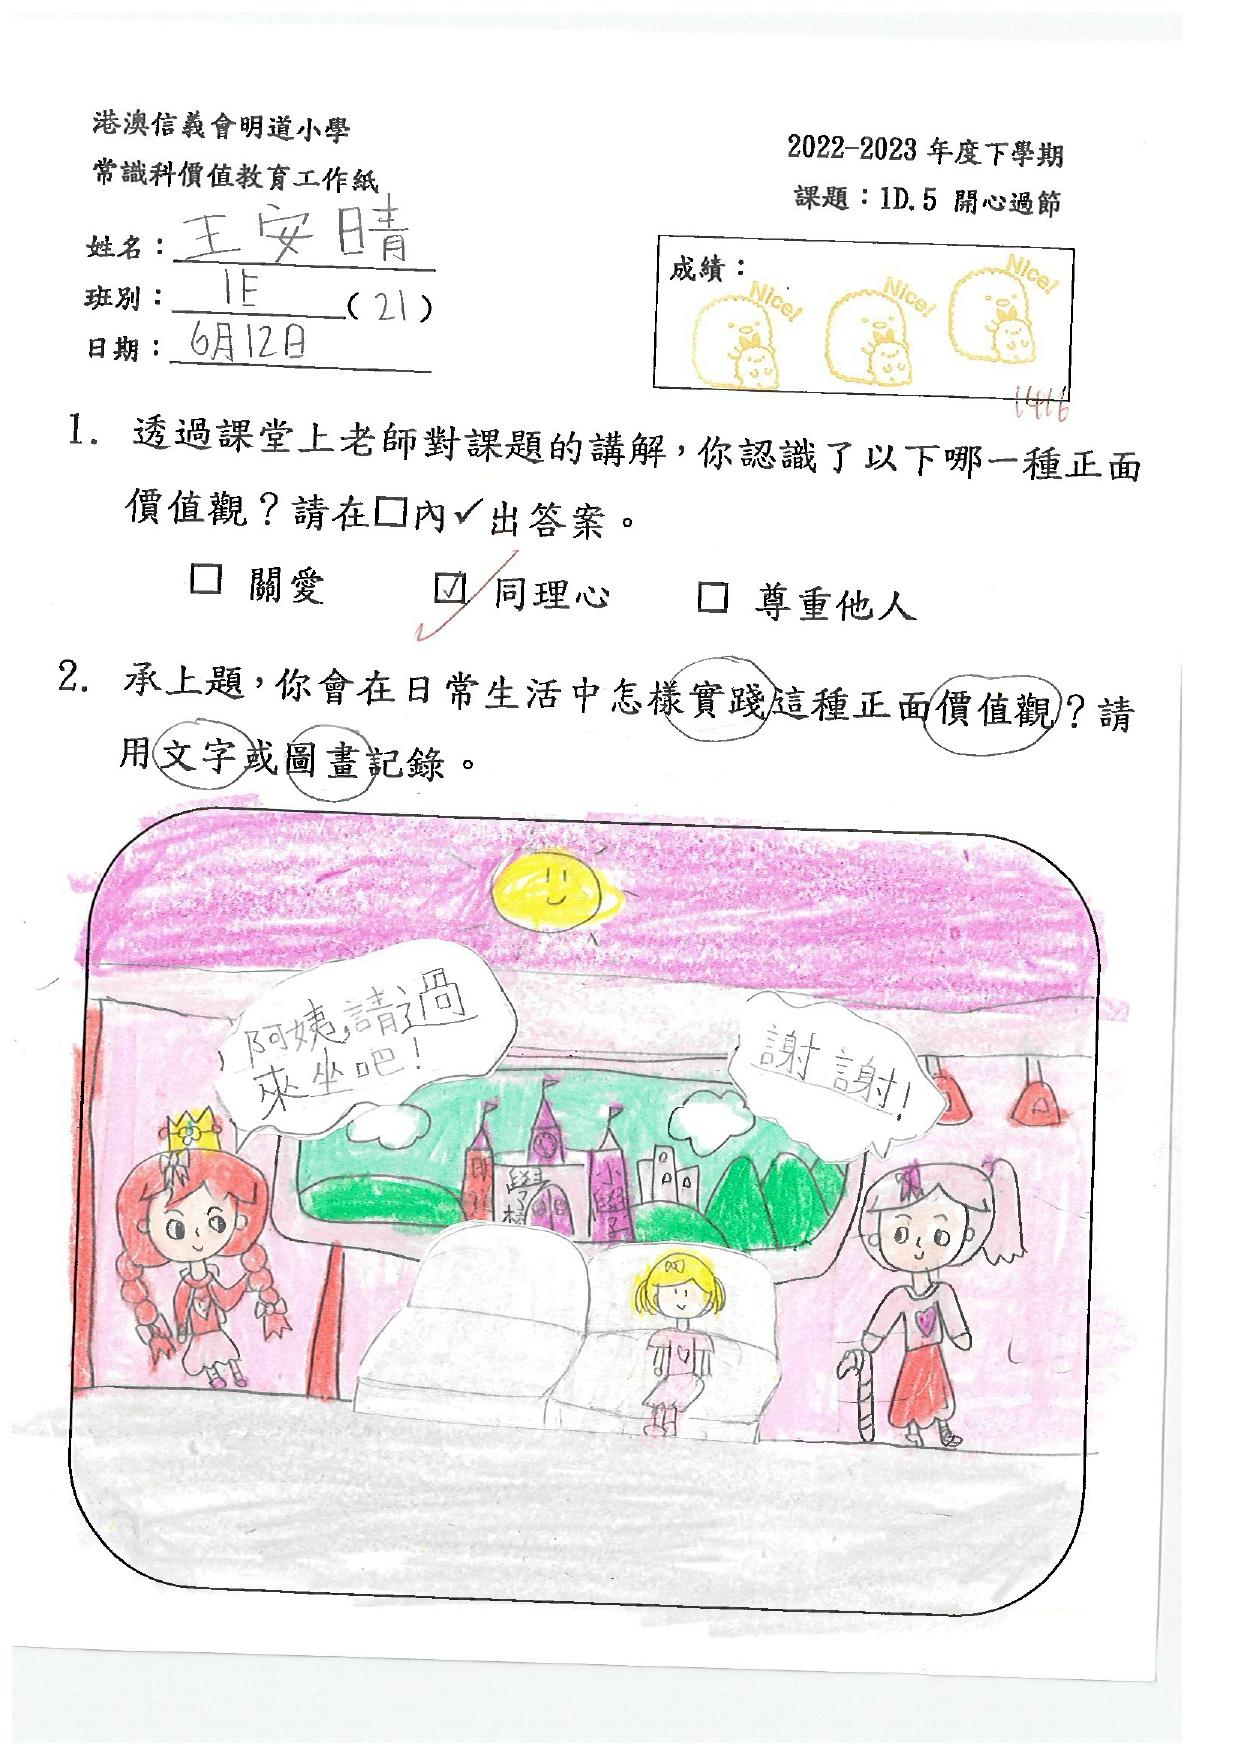 港澳信義會明道小學
常識科價值教育工作紙
2022-2023 年度下學期
課題：1D.5 開心過節
姓名：王安晴
班別：1E (21)
日期：6月12日
成績：
Nice!
Nice!
Nice!
1. 透過課堂上老師對課題的講解，你認識了以下哪一種正面
價值觀？請在□內✓出答案。
□ 關愛 ☑ 同理心 □ 尊重他人
2. 承上題，你會在日常生活中怎樣實踐這種正面價值觀？請
用文字或圖畫記錄。
阿姨，請過
來坐吧！
謝謝！
小學